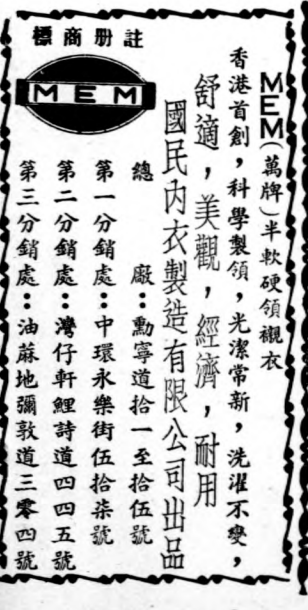 標商册註
MEM
MEM(萬牌)半軟硬領襯衣
香港首創，科學製領，光潔常新，洗濯不變，
舒適，美觀，經濟，耐用
國民內衣製造有限公司出品
總廠：勳寧道拾一至拾伍號
第一分銷處：中環永樂街伍拾柒號
第二分銷處：灣仔軒鯉詩道四四五號
第三分銷處：油蔴地彌敦道三零四號